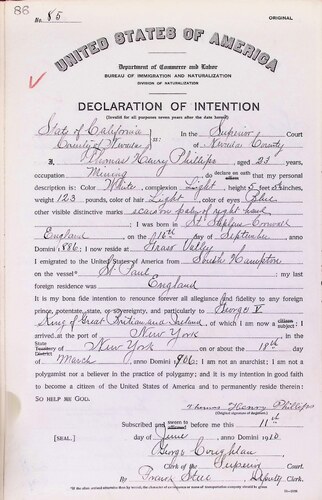 86
No. 85
ORIGINAL
UNITED STATES OF AMERICA
Department of Commerce and Labor
BUREAU OF IMMIGRATION AND NATURALIZATION
DIVISION OF NATURALIZATION
DECLARATION OF INTENTION
(Invalid for all purposes seven years after the date hereof)
State of California
County of Nevada
ss:
In the Superior Court
of Nevada County
I, Thomas Henry Phillips, aged 23 years,
occupation Mining, do declare on oath affirm that my personal
description is: Color White, complexion Light, height 5 feet inches,
weight 123 pounds, color of hair Light, color of eyes Blue
other visible distinctive marks scar on palm of right hand
I was born in St Stephens Cornwall
England on the day of September, anno
Domini 1886; I now reside at Grass Valley
I emigrated to the United States of America from South Hampton
on the vessel St Paul; my last
foreign residence was England
It is my bona fide intention to renounce forever all allegiance and fidelity to any foreign
prince, potentate, state, or sovereignty, and particularly to George V
King of Great Britain and Ireland, of which I am now a citizen subject; I
arrived at the port of New York, in the
State Territory District of New York on or about the 18th day
of March, anno Domini 1906; I am not an anarchist; I am not a
polygamist nor a believer in the practice of polygamy; and it is my intention in good faith
to become a citizen of the United States of America and to permanently reside therein:
SO HELP ME GOD.
Thomas Henry Phillips
(Original signature of declarant)
Subscribed and sworn to affirmed before me this 11th
[SEAL.] day of June, anno Domini 1910
George Coughlan
Clerk of the Superior Court.
By Deputy Clerk.